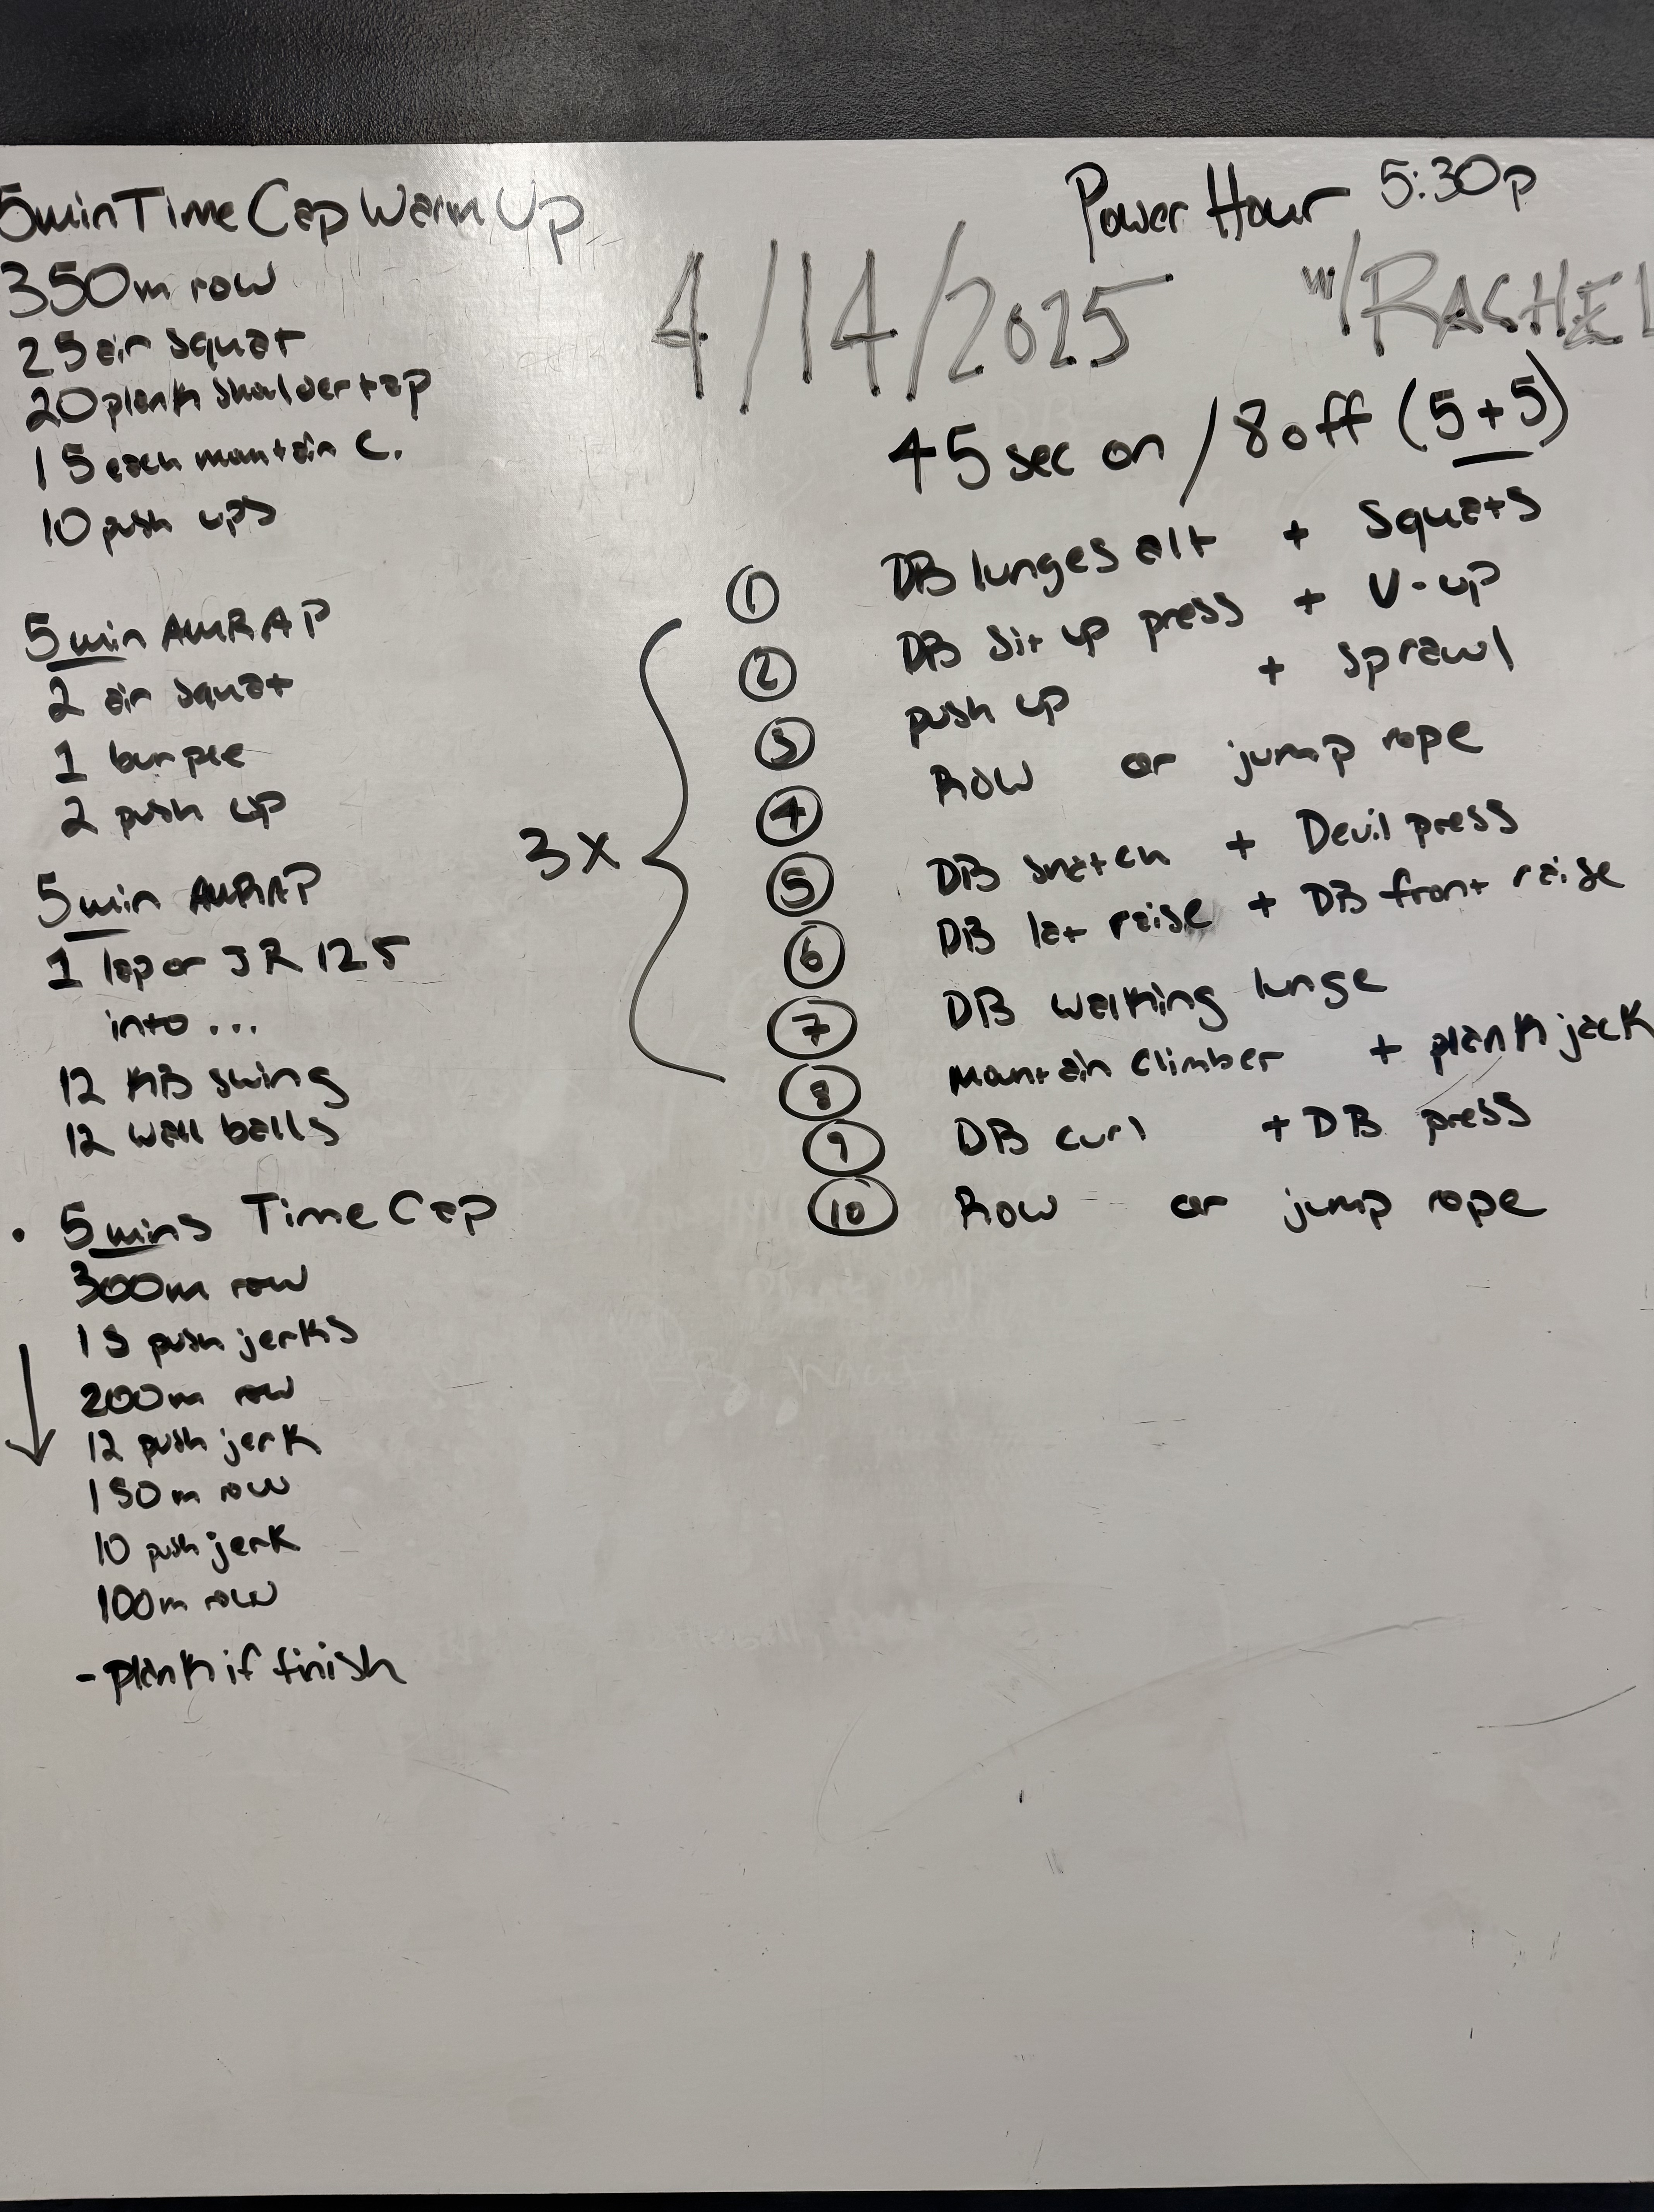 5min Time Cap Warm Up
350m row
25 air squat
20 plank shoulder tap
15 each mountain C.
10 push ups
5 min AMRAP
2 air squat
1 burpee
2 push up
5 min AMRAP
1 lap or JR 125
into...
12 KB swing
12 wall balls
• 5 mins Time Cap
300m row
15 push jerks
200m row
12 push jerk
150m row
10 push jerk
100m row
- plank if finish
Power Hour 5:30p
4/14/2025 w/RACHEL
45 sec on / 8 off (5+5)
3x
① DB lunges alt + Squats
② DB Sit up press + V-up
③ push up + sprawl
④ Row or jump rope
⑤ DB snatch + Devil press
⑥ DB lat raise + DB front raise
⑦ DB walking lunge
⑧ Mountain climber + plank jack
⑨ DB curl + DB press
⑩ Row or jump rope